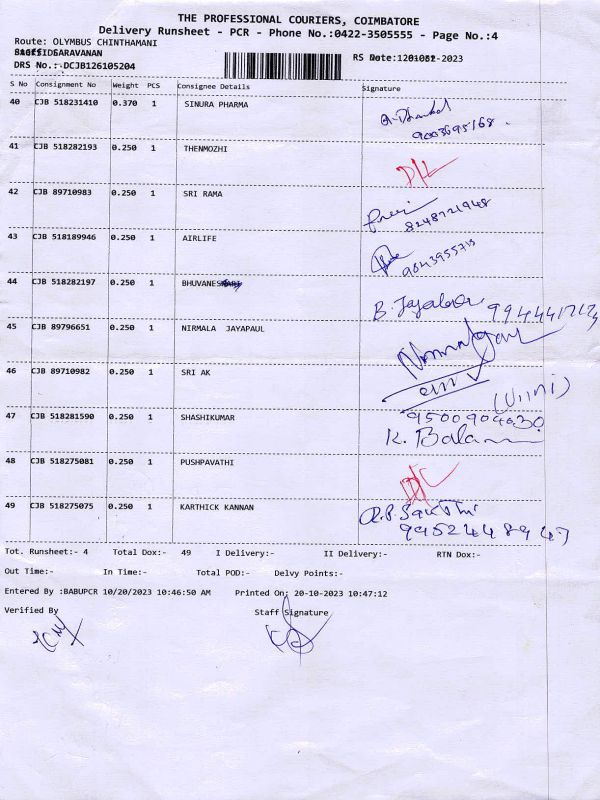 THE PROFESSIONAL COURIERS, COIMBATORE
Delivery Runsheet - PCR - Phone No.:0422-3505555 - Page No.:4
Route: OLYMBUS CHINTHAMANI
SARAVANAN
RS Date: -2023
DRS No.:-DCJB126105204
S No Consignment No Weight PCS Consignee Details Signature
40 CJB 518231410 0.370 1 SINURA PHARMA
9003695168.
41 CJB 518282193 0.250 1 THENMOZHI
D/L
42 CJB 89710983 0.250 1 SRI RAMA
8248721948
43 CJB 518189946 0.250 1 AIRLIFE
44 CJB 518282197 0.250 1 BHUVANESWARI
B.
45 CJB 89796651 0.250 1 NIRMALA JAYAPAUL
46 CJB 89710982 0.250 1 SRI AK
9500904030
47 CJB 518281590 0.250 1 SHASHIKUMAR
K. Balan
48 CJB 518275081 0.250 1 PUSHPAVATHI
D/L
49 CJB 518275075 0.250 1 KARTHICK KANNAN
9952448947
Tot. Runsheet:- 4 Total Dox:- 49 I Delivery:- II Delivery:- RTN Dox:-
Out Time:- In Time:- Total POD:- Delvy Points:-
Entered By :BABUPCR 10/20/2023 10:46:50 AM Printed On: 20-10-2023 10:47:12
Verified By Staff Signature